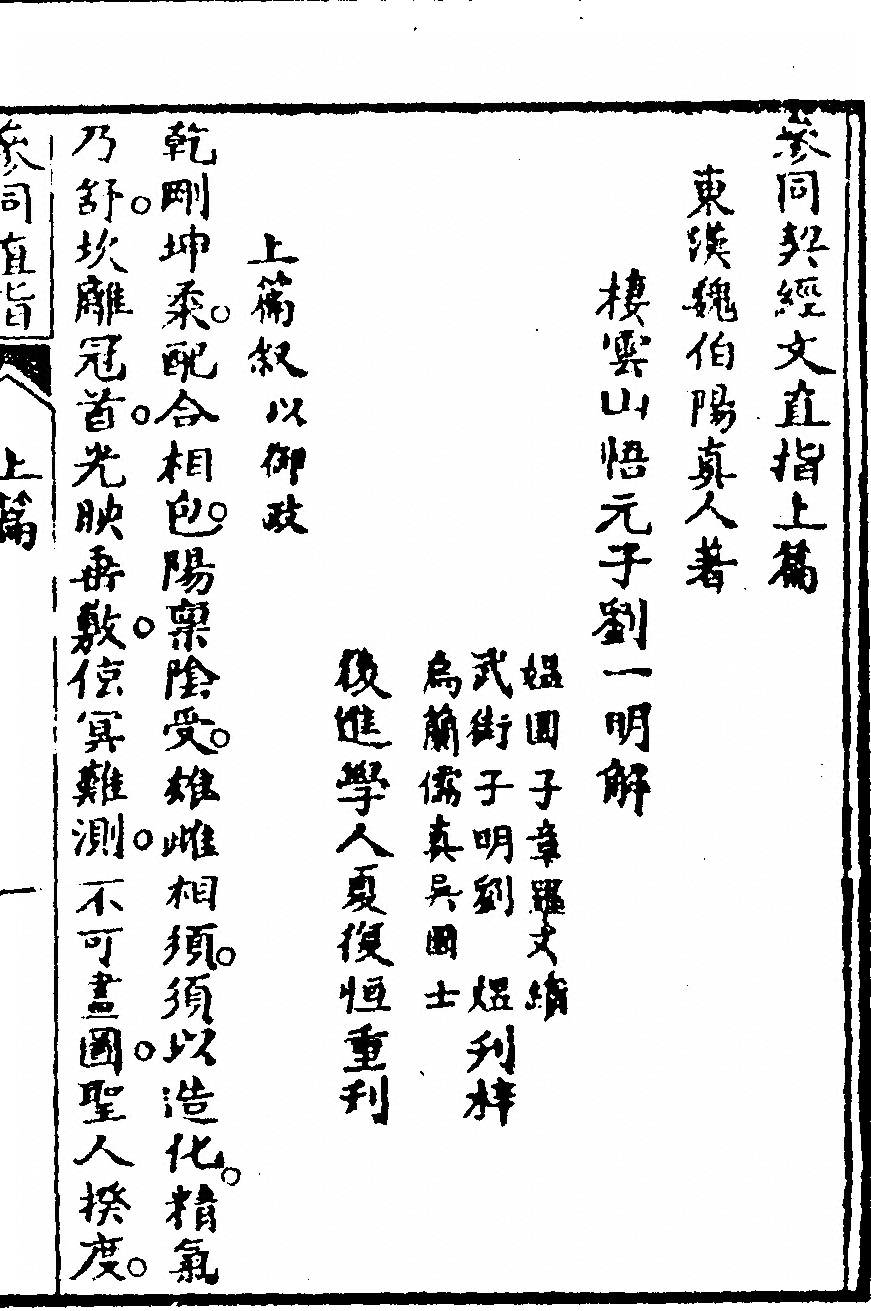 參同契經文直指上篇
東漢魏伯陽真人著
棲雲山悟元子劉一明解
媪圍子章羅文繡
武街子明劉 煴刋梓
烏蘭儒真吳圖士
後進學人夏復恒重刋
上篇敘以御政
乾剛坤柔。配合相包。陽稟陰受。雄雌相須。須以造化。精氣
乃舒。坎離冠首。光映垂敷。倞冥難測。不可畫圖。聖人揆度。
參同直指
上篇
一